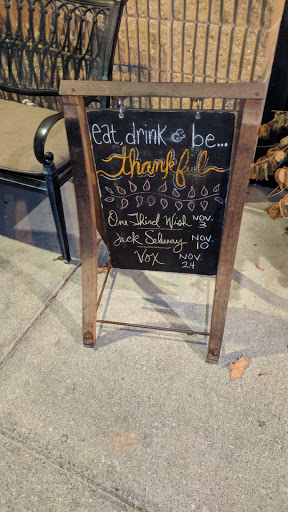 eat, drink & be...
thankful
One Third Wish NOV. 3
Jack Selway NOV. 10
VOX NOV. 24